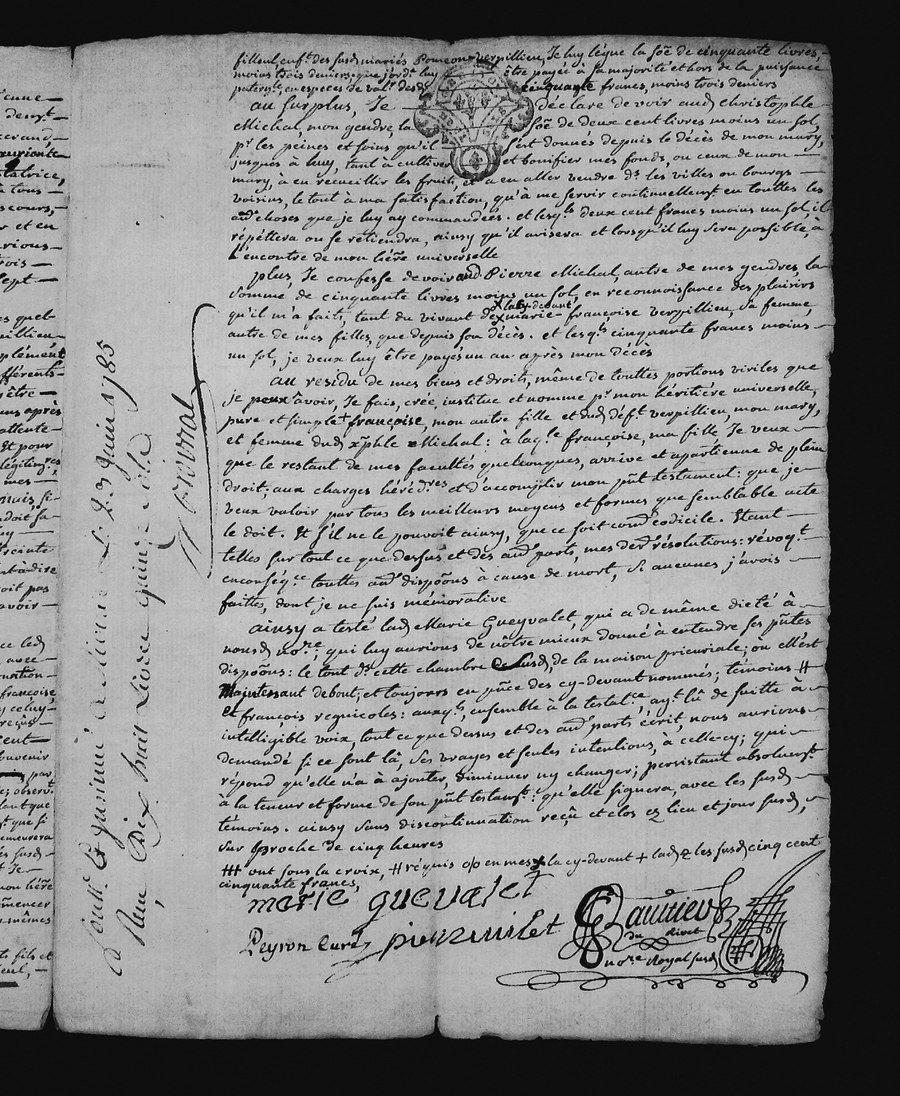 filleul, enft. des susd. mariés Verpillieu, Je luy légue la sôe de cinquante livres,
moins trois deniers; que j'ord. luy être payée à sa majorité et hors de la puissance
en especes de val. cinquante francs, moins trois deniers
au surplus, Je déclare devoir aud. christophle
Michal, mon gendre, la sôe de deux cent livres moins un sol,
pr. les peines et soins qu'il s'est donnés depuis le décès de mon mary,
jusques à huy, tant à cultiver et bonifier mes fonds, ou ceux de mon
mary, à en recueillir les fruits, et a en aller vendre ds. les villes ou bourgs
voisins, le tout à ma satisfaction, qu'à me servir continuellemt. en touttes les
choses que je luy ay commandées. et lesqls. deux cent francs moins un sol, il
répéttera ou se rétiendra, ainsy qu'il avisera et lorsqu'il luy sera possible, à
l'encontre de mon hére. universelle
plus, Je confesse devoir aud. Pierre Michal, autre de mes gendres, la
somme de cinquante livres moins un sol, en reconnoissance des plaisirs
qu'il m'a faits, tant du vivant de marie-françoise verpillieu, sa femme,
autre de mes filles, que depuis son décès. et lesqls. cinquante francs moins
un sol, je veux luy être payés un an après mon décès
au residu de mes biens et droits, même de touttes portions viriles que
je peux avoir, Je fais, crée, institue et nomme pr. mon héritière universelle,
pure et simple + françoise, mon autre fille et dud. déft. verpillieu, mon mary,
et femme dud. xphle Michal: à laqle. françoise, ma fille, Je veux
que le restant de mes facultés quelconques, arrive et apartienne de plein
droit; aux charges hérédres. et d'accomplir mon pût testament: que je
veux valoir par tous les meilleurs moyens et formes que semblable acte
le doit. Et s'il ne le pouvoit ainsy, que ce soit come codicile. Etant
telles sur tout ce que dessus et des auts. parts, mes dernes. résolutions: révoqt.
en conseqce. touttes auts. dispôons à cause de mort, si aucunes j'avois
faittes, dont je ne suis mémorative
ainsy a testé lad. Marie Guevalet, qui a de même dicté à
nousd. nore., qui luy aurions de nôtre mieux donné à entendre ses pûtes
dispôons: le tout ds. cette chambre susd. de la maison prieuriale; ou elle est
Maintenant debout; et toujours en pûce des cy-devant nommés; témoins #
et françois regnicoles: auxqls., ensemble à la testatce., ayt. lû de suitte à
intelligible voix, tout ce que dessus et des auts. parts écrit, nous aurions
demandé si ce sont là, ses vrayes et seules intentions, à celle-cy; qui
répond qu'elle n'a à ajouter, diminuer ny changer; persistant absolumt.
à la teneur et forme de son pût testamt.: qu'elle signera, avec les susd.
témoins. ainsy sans discontinuation reçu et clos ez lieu et jour susd.,
sur proche de cinq heures
ont sous la croix, # réquis en mes x la cy-devant + lad. & les susd. cinq cent
cinquante francs,
marie guevalet
Peyron Curé
du rivet
nore. Royal susd.
3 Juin 1785
Reçu Dix huit Livres quinze sols